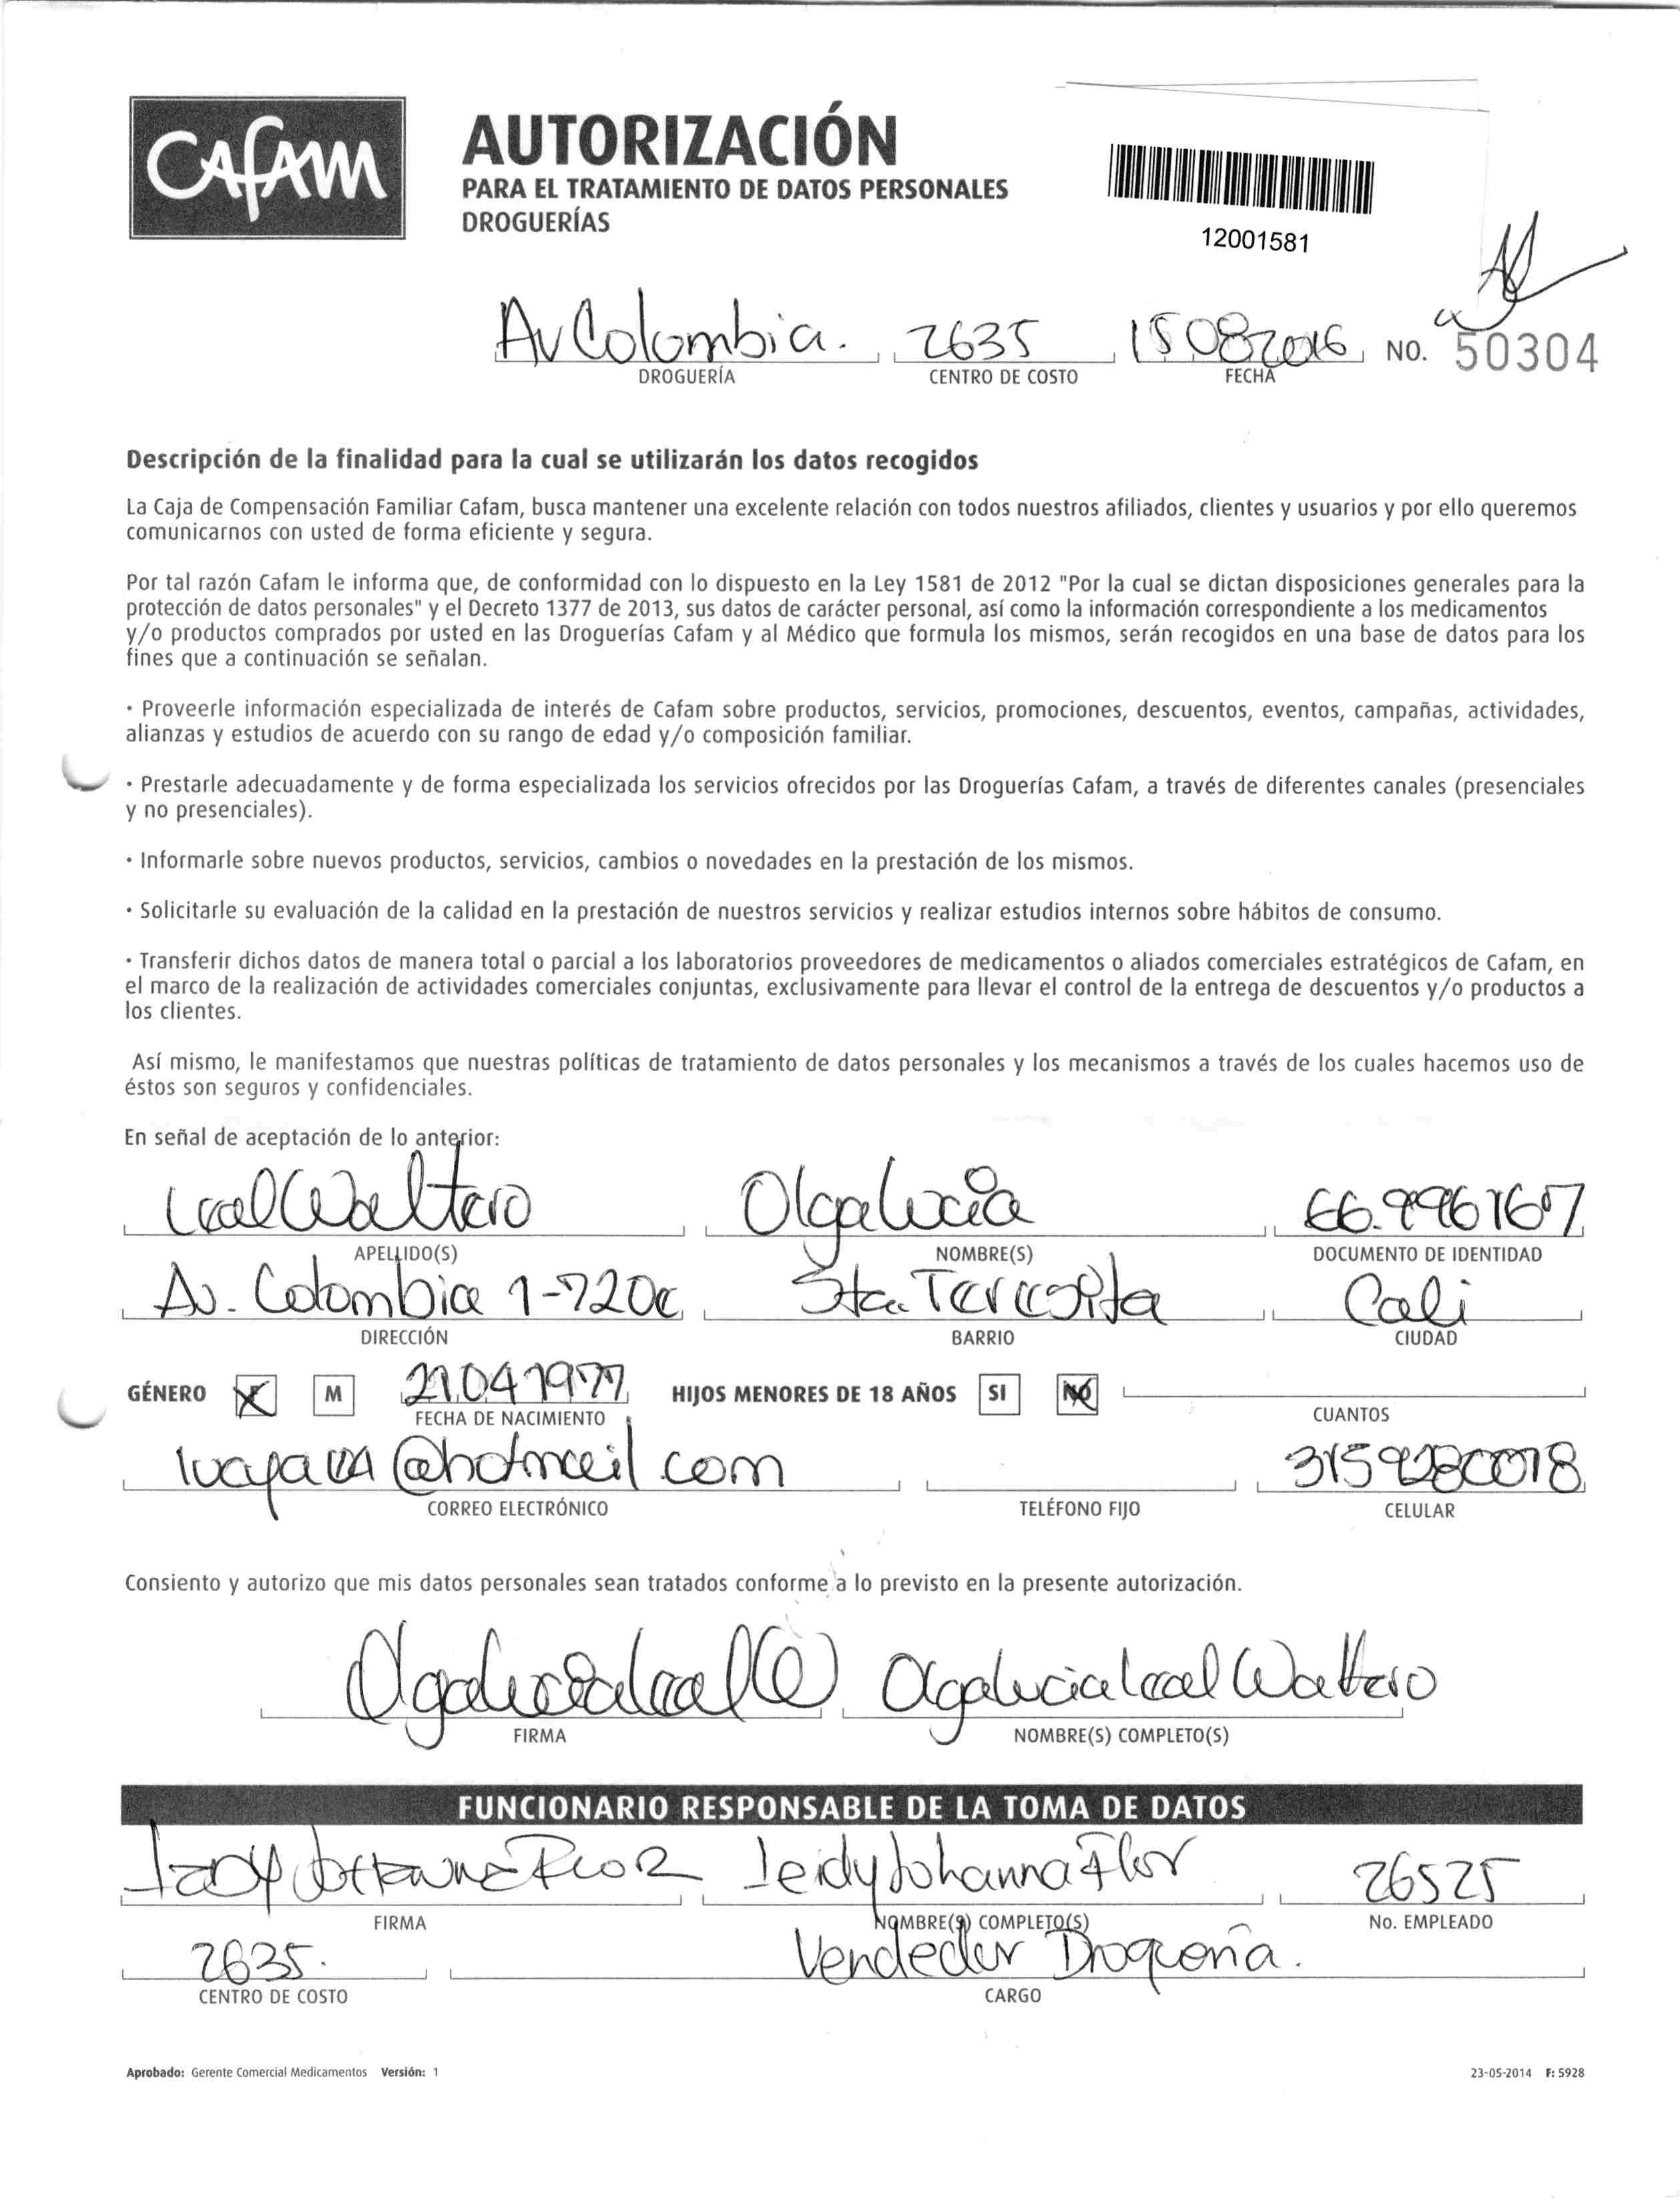 Cafam
AUTORIZACIÓN
PARA EL TRATAMIENTO DE DATOS PERSONALES
DROGUERÍAS
12001581
Av Colombia. 2635 15082016 NO. 50304
DROGUERÍA CENTRO DE COSTO FECHA
Descripción de la finalidad para la cual se utilizarán los datos recogidos
La Caja de Compensación Familiar Cafam, busca mantener una excelente relación con todos nuestros afiliados, clientes y usuarios y por ello queremos
comunicarnos con usted de forma eficiente y segura.
Por tal razón Cafam le informa que, de conformidad con lo dispuesto en la Ley 1581 de 2012 "Por la cual se dictan disposiciones generales para la
protección de datos personales" y el Decreto 1377 de 2013, sus datos de carácter personal, así como la información correspondiente a los medicamentos
y/o productos comprados por usted en las Droguerías Cafam y al Médico que formula los mismos, serán recogidos en una base de datos para los
fines que a continuación se señalan.
• Proveerle información especializada de interés de Cafam sobre productos, servicios, promociones, descuentos, eventos, campañas, actividades,
alianzas y estudios de acuerdo con su rango de edad y/o composición familiar.
• Prestarle adecuadamente y de forma especializada los servicios ofrecidos por las Droguerías Cafam, a través de diferentes canales (presenciales
y no presenciales).
• Informarle sobre nuevos productos, servicios, cambios o novedades en la prestación de los mismos.
• Solicitarle su evaluación de la calidad en la prestación de nuestros servicios y realizar estudios internos sobre hábitos de consumo.
• Transferir dichos datos de manera total o parcial a los laboratorios proveedores de medicamentos o aliados comerciales estratégicos de Cafam, en
el marco de la realización de actividades comerciales conjuntas, exclusivamente para llevar el control de la entrega de descuentos y/o productos a
los clientes.
Así mismo, le manifestamos que nuestras políticas de tratamiento de datos personales y los mecanismos a través de los cuales hacemos uso de
éstos son seguros y confidenciales.
En señal de aceptación de lo anterior:
Leal Waltero Olga Lucia
APELLIDO(S) NOMBRE(S) DOCUMENTO DE IDENTIDAD
Av. Colombia 1-720c Sta. Teresita Cali
DIRECCIÓN BARRIO CIUDAD
GÉNERO M 21041977 HIJOS MENORES DE 18 AÑOS SI NO
FECHA DE NACIMIENTO CUANTOS
@hotmail.com
CORREO ELECTRÓNICO TELÉFONO FIJO CELULAR
Consiento y autorizo que mis datos personales sean tratados conforme a lo previsto en la presente autorización.
Olga Lucia Leal W Olga Lucia Leal Waltero
FIRMA NOMBRE(S) COMPLETO(S)
FUNCIONARIO RESPONSABLE DE LA TOMA DE DATOS
Leidy Johanna Flor 26525
FIRMA NOMBRE(S) COMPLETO(S) No. EMPLEADO
2635. Vendedor Droguería.
CENTRO DE COSTO CARGO
Aprobado: Gerente Comercial Medicamentos Versión: 1 23-05-2014 F: 5928